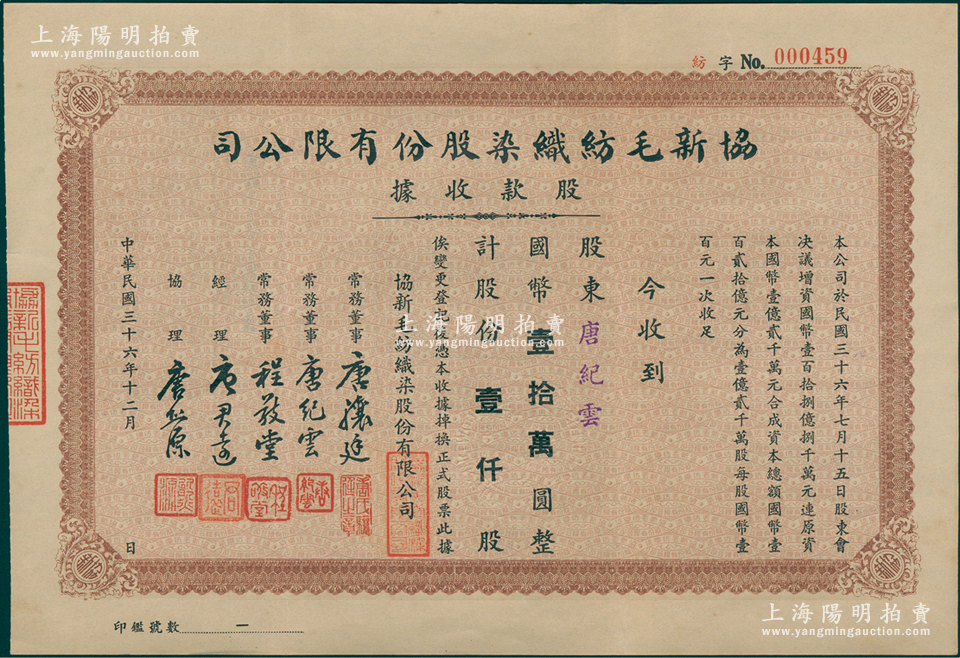 上海陽明拍賣
www.yangmingauction.com
紡字 No. 000459
協新毛紡織染股份有限公司
股款收據
本公司於民國三十六年七月十五日股東會
決議增資國幣壹百拾捌億捌千萬元連原資
本國幣壹億貳千萬元合成資本總額國幣壹
百貳拾億元分為壹億貳千萬股每股國幣壹
百元一次收足
今收到
股東 唐紀雲
國幣壹拾萬圓整
計股份壹仟股
俟變更登記後憑本收據掉換正式股票此據
協新毛紡織染股份有限公司
常務董事 唐驤廷
常務董事 唐紀雲
常務董事 程敬堂
經理 唐君遠
協理 唐熊源
中華民國三十六年十二月 日
印鑑號數 一
上海陽明拍賣
www.yangmingauction.com
上海陽明拍賣
www.yangmingauction.com